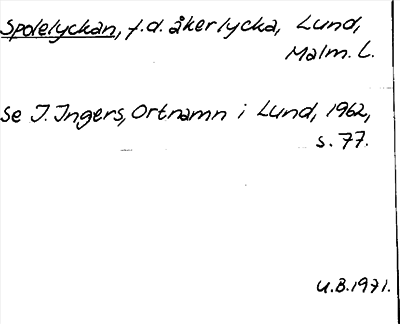 Spolelyckan, f.d. åkerlycka, Lund,
Malm. L.
Se J. Ingers, Ortnamn i Lund, 1962,
s. 77.
U.B. 1971.